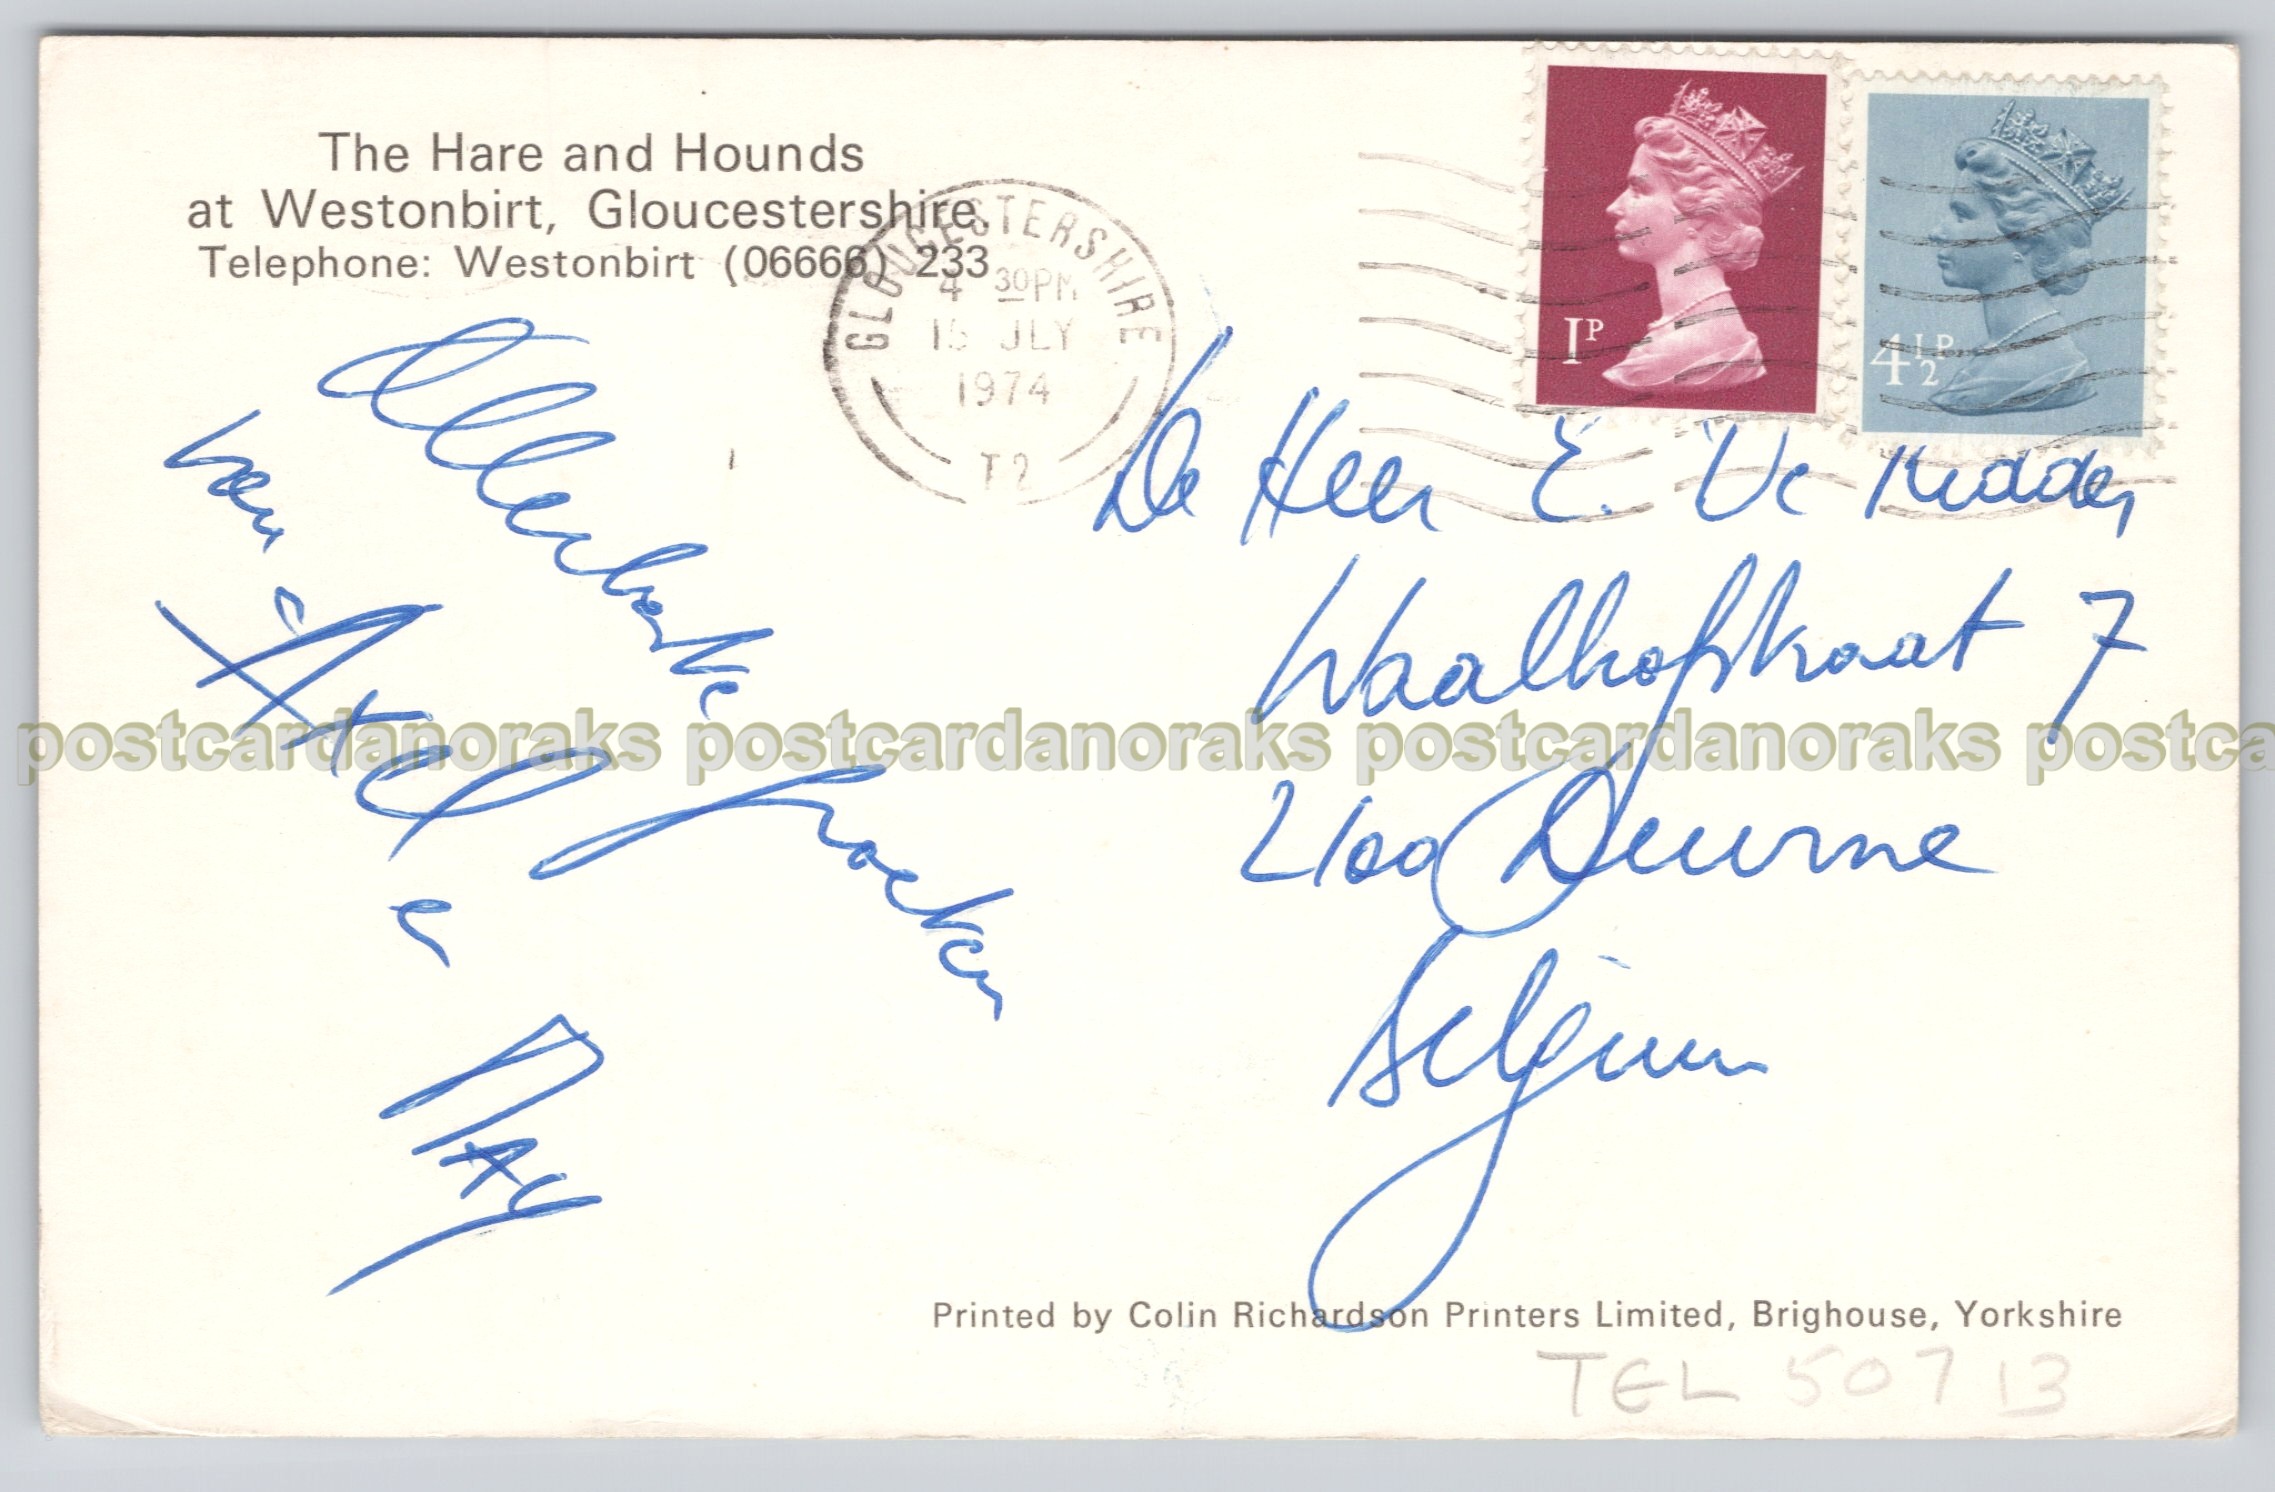 The Hare and Hounds
at Westonbirt, Gloucestershire.
Telephone: Westonbirt (06666) 233
GLOUCESTERSHIRE
4 30PM
JLY
1974
T2
1P
4½P
Allerbeste
groeten
van
Axel
e
May
De Heer E. De Ridder
Waalhofstraat 7
2100 Deurne
Belgium
postcardanoraks postcardanoraks postcardanoraks postca
Printed by Colin Richardson Printers Limited, Brighouse, Yorkshire
TEL 50713